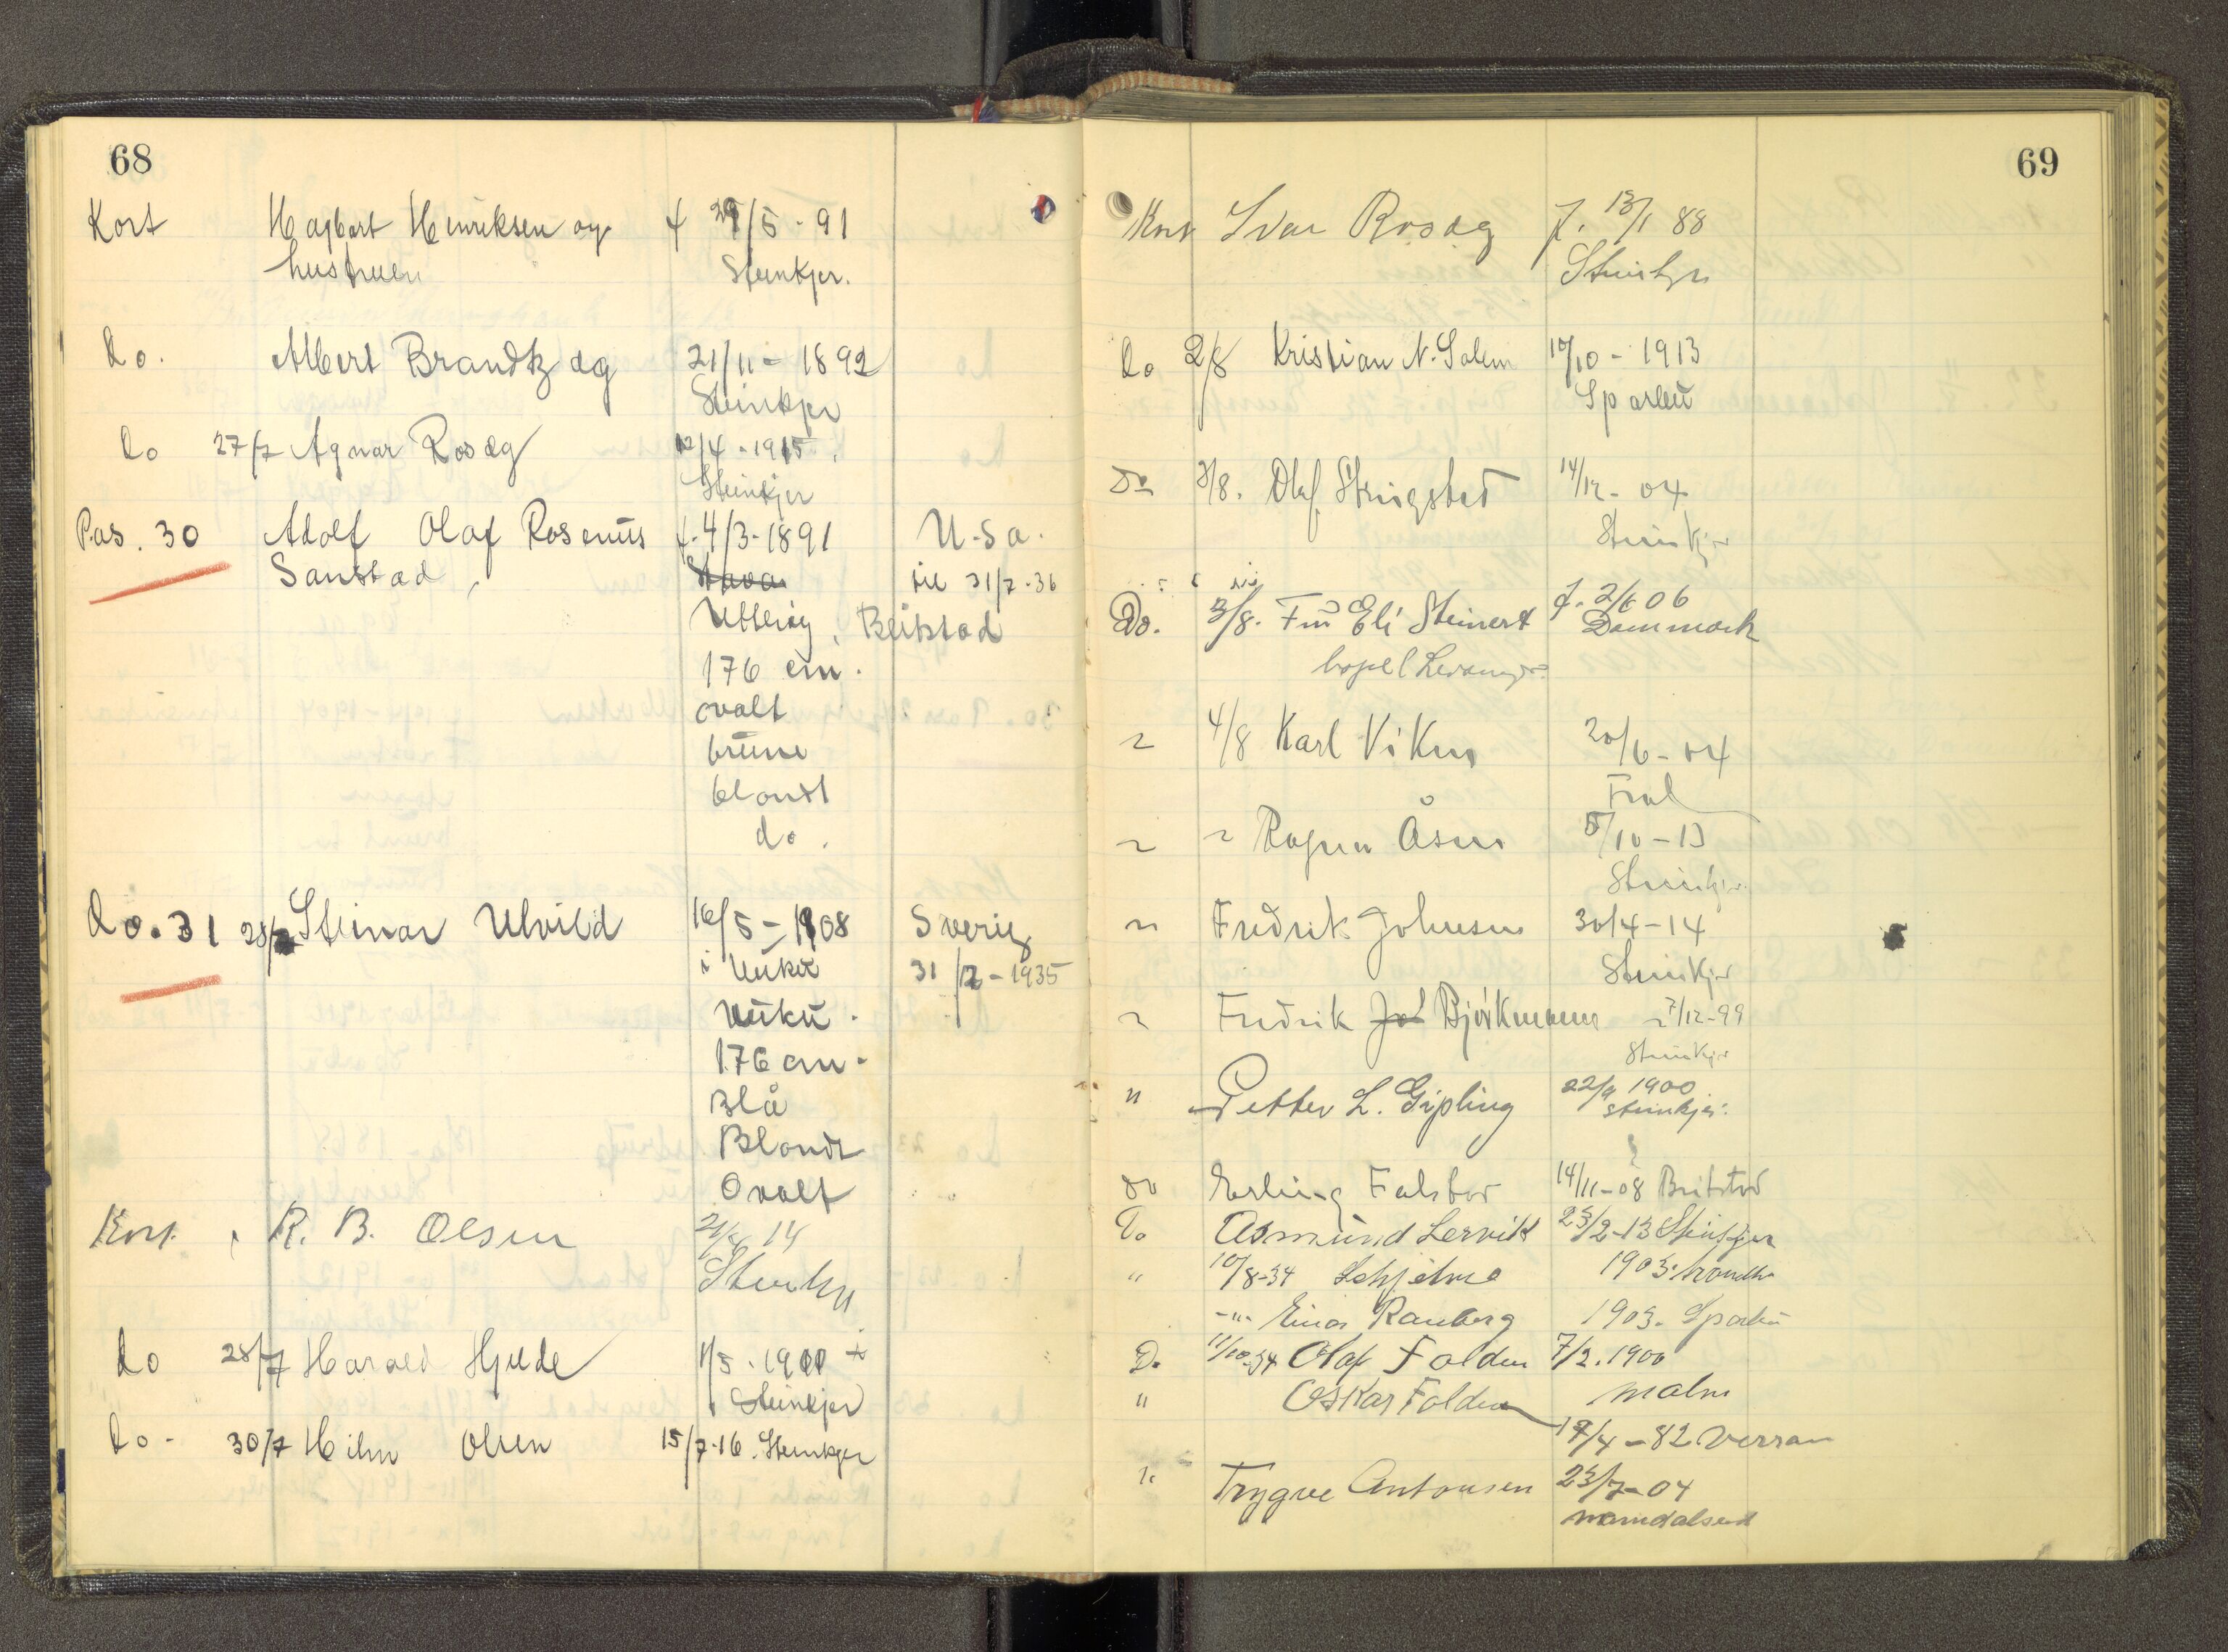 68
Kort Hagbart Henriksen og f 29/5-91
hustruen Steinkjer.
do. Albert Brandtzæg 21/11-1892
Steinkjer
do 27/7 Agnar Rosæg 12/4-1915.
Steinkjer
Pas. 30 Adolf Olaf Rosenius f. 4/3-1891 U.S.a.
Sanstad, til 31/7-36
Utterøy, Beitstad
176 cm.
ovalt
brune
blondt
do.
do. 31 28/7 Steinar Ulvild 16/5-1908 Sverig
i Vuku 31/12-1935
Vuku.
176 cm.
Blå
Blondt
Ovalt
Kort R. B. Olsen 14
Steinkjer
do 28/7 Harald Hjelde 1/5-1900
Steinkjer
do- 30/7 Hilm Olsen 15/7-16. Steinkjer
69
Kort Ivar Rosæg f. 13/1 88
Steinkjer
do 2/8 Kristian N. Salem 10/10-1913
Sparbu
Do 3/8. Olaf Stringstad 14/12-04
Steinkjer
Do. 3/8. Eli Steinert f. 2/6 06
Danmark
bopel Levanger
4/8 Karl Viken 20/6-04
Frol
" Åsen 5/10-13
Steinkjer
" Fredrik Johnsen 30/4-14
Steinkjer
" Fredrik Jo Bjørkmanns 7/12-99
Steinkjer
" Petter L. Gipling 22/9 1900
Steinkjer.
do Erling Falstad 14/11-08 Beitstad
Do Asmund Lervik 23/2-13 Steinkjer
" 10/8-34 Schjelme 1903.
-"- Einar Ranberg 1903. Sparbu
Do 11/10-34 Olaf Folden 7/2.1900
" Oskar Folden Malm
17/4-82 Verran
" Trygve Antonsen 23/7-04
Namdalseid